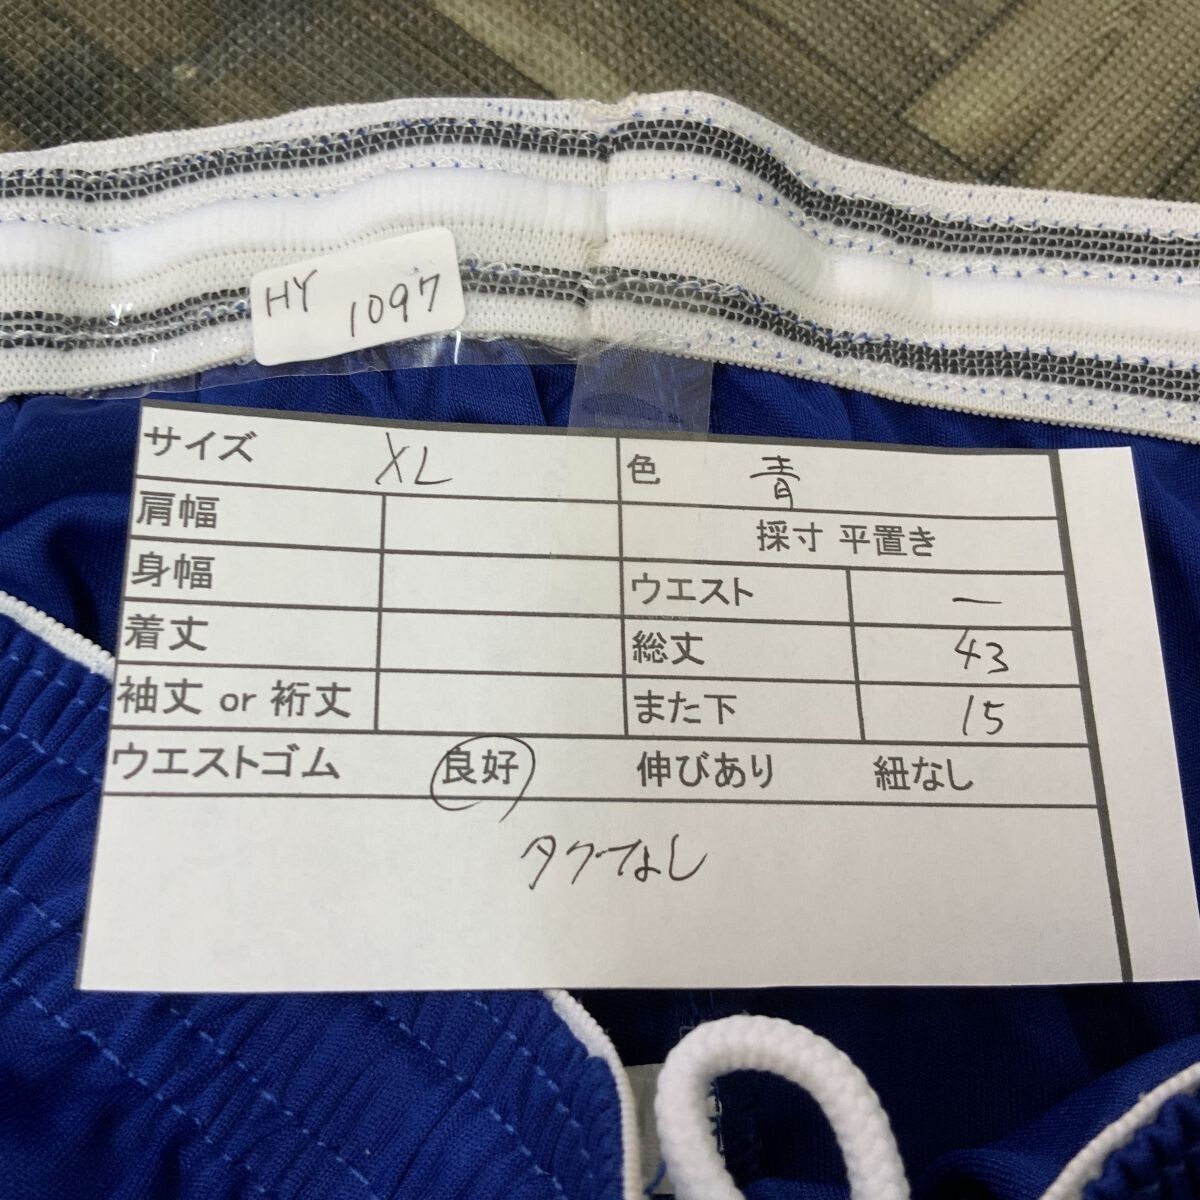 HY 1097
サイズ XL 色 青
肩幅 採寸 平置き
身幅 ウエスト ―
着丈 総丈 43
袖丈 or 裄丈 また下 15
ウエストゴム 良好 伸びあり 紐なし
タグなし